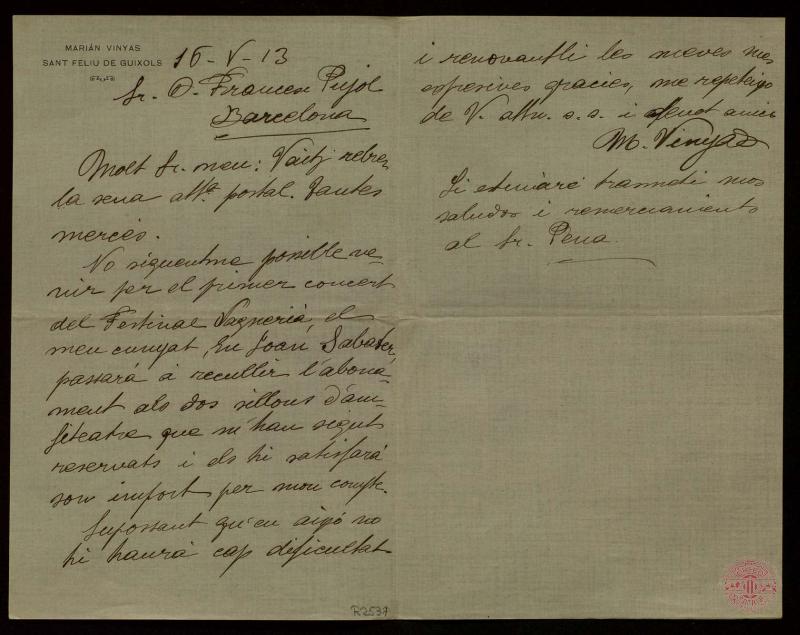 MARIÁN VINYAS
SANT FELIU DE GUIXOLS
16-V-13
Sr. D. Francesc Pujol
Barcelona
Molt Sr. meu: Vaitj rebre
la seva attª postal. Tantes
mercés.
No siguentme possible ve-
nir per el primer concert
del Festival Vagneriá, el
meu cunyat, En Joan Sabater,
passará á recullir l'abona-
ment als dos sillons d'am-
fiteatre que m'han sigut
reservats i els hi satisfará
son import per mon compte.
Suposant qu'en aixó no
hi haurá cap dificultat
i renovantli les meves mes
expresives gracies, me repeteixo
de V. attm. s. s. i devot amic
M. Vinyas
Li estimaré trasmeti mos
saludos i remerciaments
al Sr. Pena.
R2537